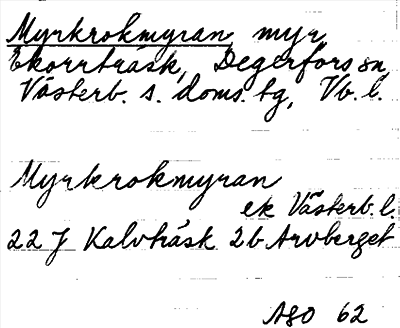 Myrkrokmyran myr
Ekorrträsk, Degerfors sn,
Västerb. s. doms. tg, Vb. l.
Myrkrokmyran
ek Västerb. l.
22 J Kalvträsk 2b Arvberget
ASO 62